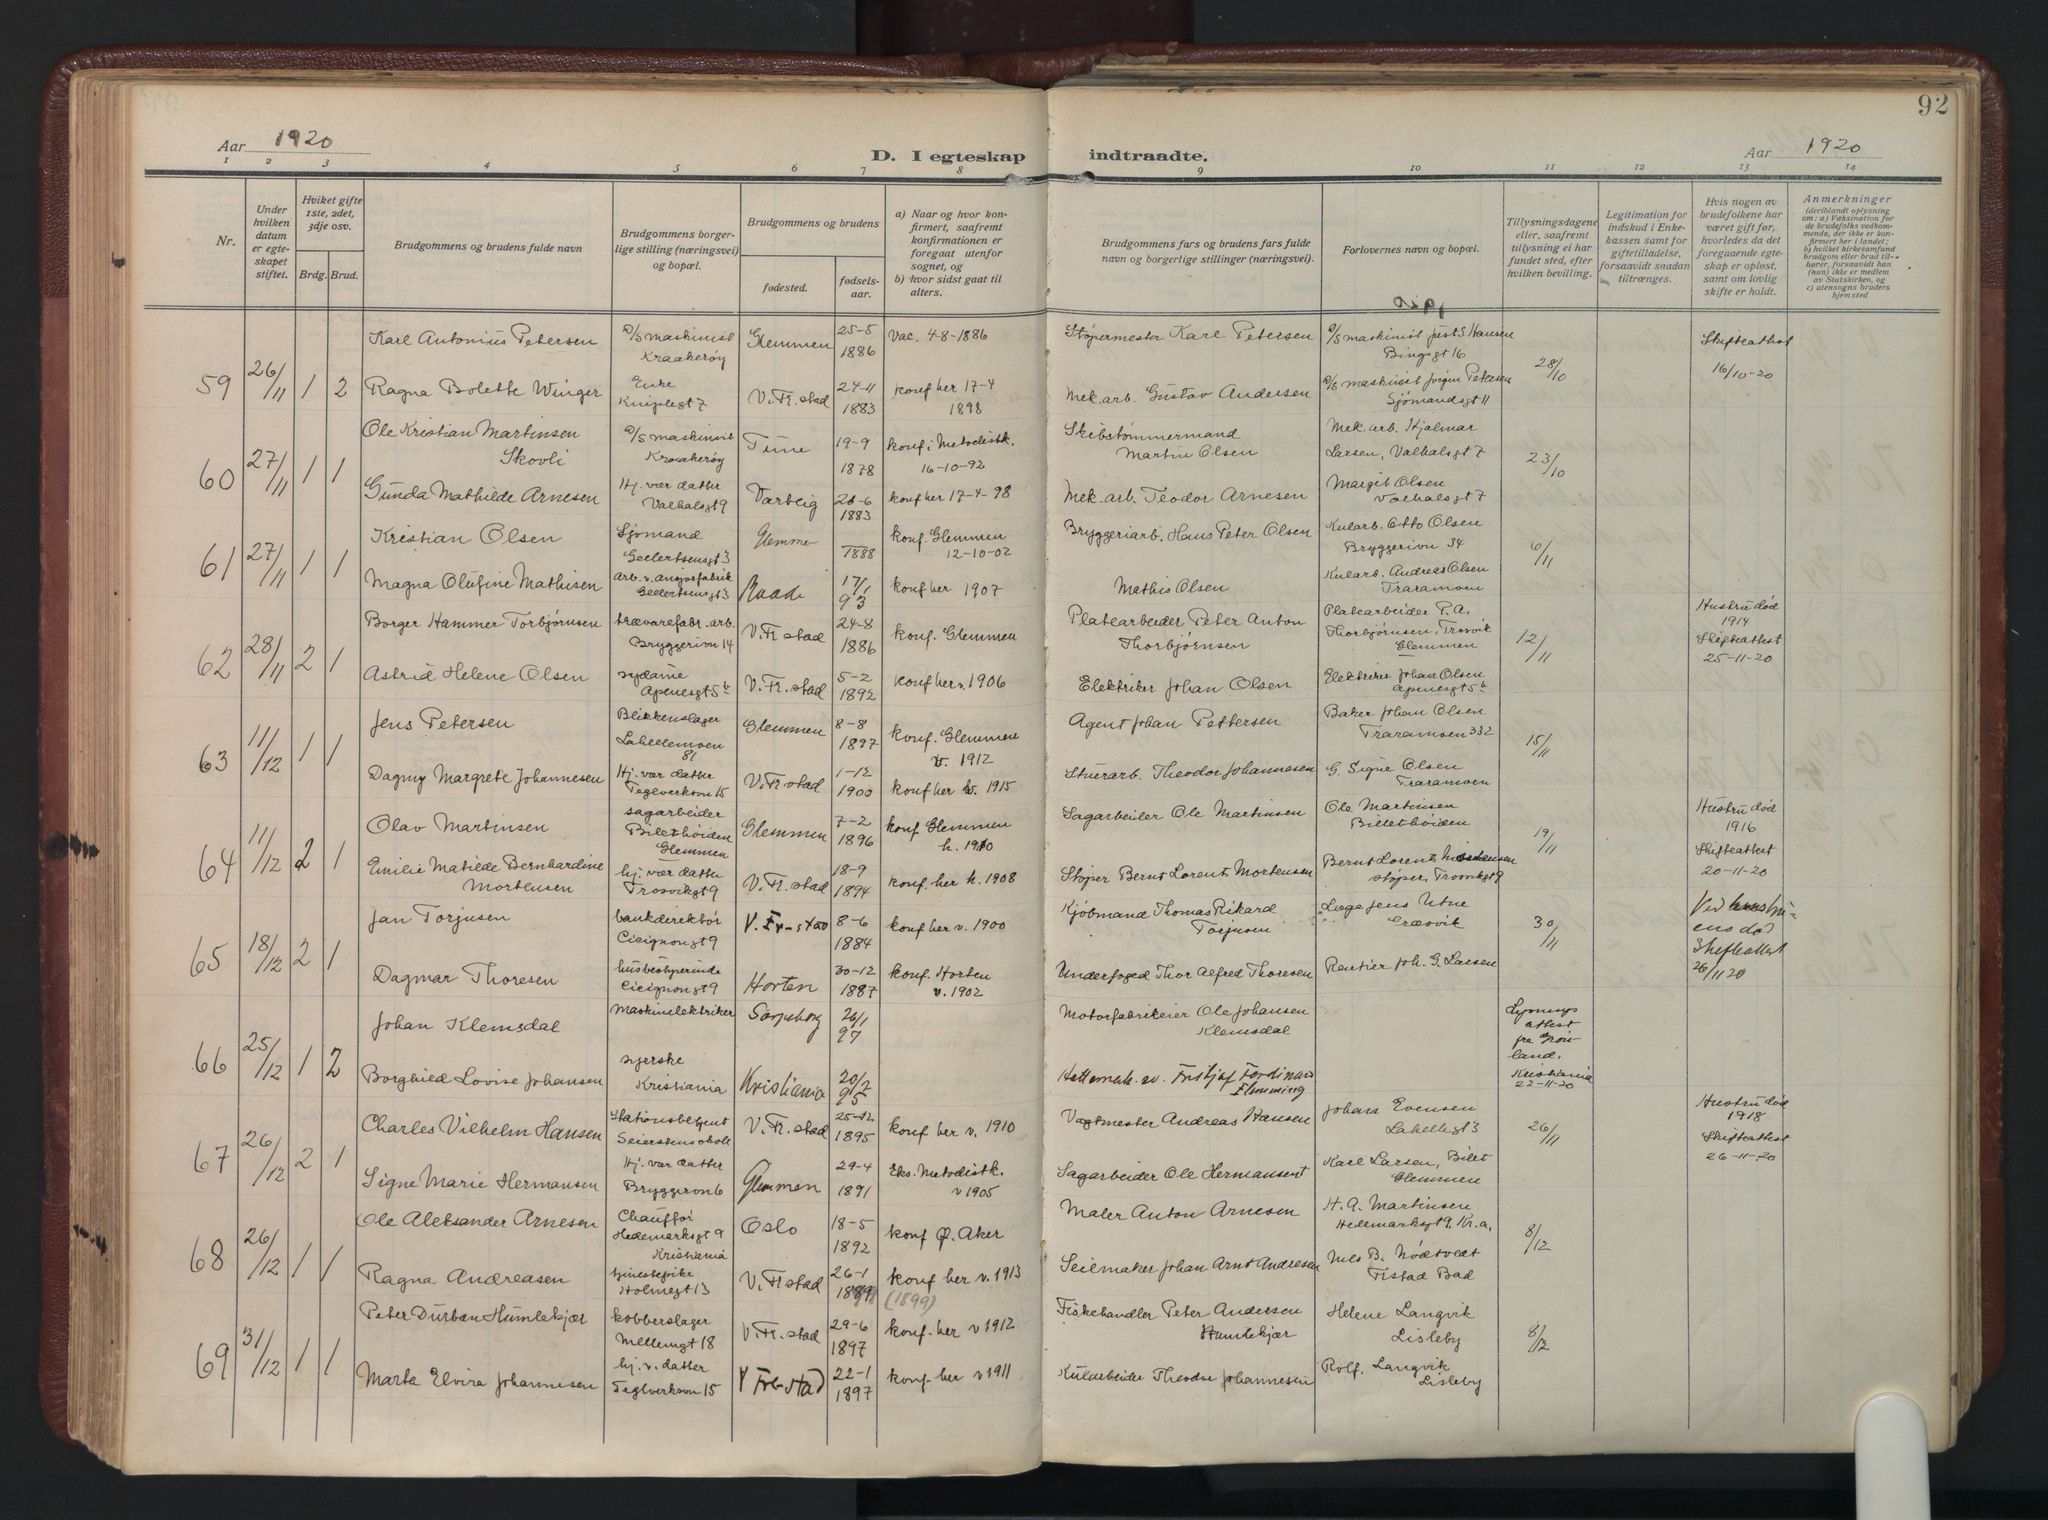 92
Aar 1920
D. I egteskap indtraadte.
Aar 1920
1 2 3 4 5 6 7 8 9 10 11 12 13 14
Nr.
Under hvilken datum er egteskapet stiftet.
Hviket gifte 1ste, 2det, 3dje osv.
Brdg. Brud.
Brudgommens og brudens fulde navn
Brudgommens borgerlige stilling (næringsvei) og bopæl.
Brudgommens og brudens
fødested.
fødselsaar.
a) Naar og hvor konfirmert, saafremt konfirmationen er foregaat utenfor sognet, og
b) hvor sidst gaat til alters.
Brudgommens fars og brudens fars fulde navn og borgerlige stillinger (næringsvei).
Forlovernes navn og bopæl.
Tillysningsdagene eller, saafremt tillysning ei har fundet sted, efter hvilken bevilling.
Legitimation for indskud i Enkekassen samt for giftetilladelse, forsaavidt saadan tiltrænges.
Hvis nogen av brudefolkene har været gift før, hvorledes da det foregaaende egteskap er opløst, samt om lovlig skifte er holdt.
Anmerkninger
(deriblandt oplysning om: a) Vaksination for de brudefolks vedkommende, der ikke er konfirmert her i landet; b) hvilket kirkesamfund brudgom eller brud tilhører, forsaavidt han (hun) ikke er medlem av Statskirken, og c) utensogns bruders hjemsted
59 26/11 1 2
Karl Antonius Petersen D/S maskinist Kraakerøy Glemmen 25-5 1886 Vac. 4-8-1886 Støpermester Karl Petersen D/S maskinist Just S Hansen Bingsgt 16 28/10 Skifteattest 16/10-20
Ragna Bolette Winger Enke Kniplegt 7 V. Fr. stad 24-11 1883 konf her 17-4 1898 Mek. arb. Gustav Andersen D/S maskinist Jørgen Petersen Sjömandsgt 11
60 27/11 1 1
Ole Kristian Martinsen Skovli D/S maskinist Kraakerøy Tune 19-9 1878 konf i Metodistk. 16-10-92 Skibstømmermand Martin Olsen Mek. arb. Hjalmar Larsen, Valhalsgt 7 23/10
Gunda Mathilde Arnesen Hj. vær datter Valhalsgt 9 Varteig 21-6 1883 konf her 17-4-98 Mek. arb. Teodor Arnesen Margit Olsen Valhalsgt 7
61 27/11 1 1
Kristian Olsen Sjømand Geelertsensgt 3 Glemmen 1888 konf. Glemmen 12-10-02 Bryggeriarb. Hans Peter Olsen Kularb. Otto Olsen Bryggerivn 34 6/11
Magna Olufine Mathisen arb. v. ansjosfabrik Geelertsensgt 3 Raade 17/1 93 konf her 1907 Mathis Olsen Kularb. Andreas Olsen Traramoen
62 28/11 2 1
Borger Hammer Torbjørnsen trævarefabr. arb. Bryggerivn 14 V. Fr stad 24-8 1886 konf. Glemmen Platearbeider Peter Anton Thorbjørnsen Platearbeider P.A. Thorbjørnsen, Trosvik Glemmen 12/11 Hustru død 1914 Skifteattest 25-11-20
Astrid Helene Olsen sydame Apenesgt 5b V. Fr. stad 5-2 1892 konf her v. 1906 Elektriker Johan Olsen Elektriker Johan Olsen Apenesgt 5b
63 11/12 1 1
Jens Petersen Blikkenslager Lahellemoen 81 Glemmen 8-8 1897 konf. Glemmen v. 1912 Agent Johan Pettersen Baker Johan Olsen Traramoen 332 15/11
Dagny Margrete Johannesen Hj. vær datter Teglverksvn 15 V. Fr stad 1-12 1900 konf her h. 1915 Stuerarb. Theodor Johannesen G. Signe Olsen Traramoen
64 11/12 2 1
Olav Martinsen sagarbeider Billethöiden Glemmen Glemmen 7-2 1896 konf Glemmen h. 1910 Sagarbeider Ole Martinsen Ole Martinsen Billethöiden 19/11 Hustru død 1916 Skifteattest 20-11-20
Emilie Matilde Bernhardine Mortensen hj. vær datter Trosvikgt 9 V. Fr. stad 18-9 1894 konf. her h. 1908 Støper Bernt Lorents Mortensen Bernt Lorents Mortensen støper, Trosvikgt 9
65 18/12 2 1
Jan Torjusen bankdirektør Cicignongt 9 V. Fr-stad 8-6 1884 konf her v. 1900 Kjöbmand Thomas Rikard Torjusen Læge Jens Utne Græsvik 30/11 Ved hustruens død Skifteattest 26/11 20
Dagmar Thoresen husbestyrerinde Cicignongt 9 Horten 30-12 1887 konf. Horten v. 1902 Underfoged Thor Alfred Thoresen Rentier Joh. G. Larsen
66 25/12 1 2
Johan Klemsdal Maskinelektriker Sarpsborg 26/1 97 Motorfabrikeier Ole Johansen Klemsdal Lysnings attest fra Grönland, Kristiania 22-11-20
Borghild Lovise Johansen syerske Kristiania Kristiania 20/2 95 Fritjof Ferdinand Flemming
67 26/12 2 1
Charles Vilhelm Hansen Stationsbetjent Seierstens skole V. Fr. stad 25-12 1895 konf her v. 1910 Vagtmester Andreas Hansen Johan Evensen Lahellegt 3 26/11 Hustru død 1918 Skifteattest 26-11-20
Signe Marie Hermansen Hj. vær datter Bryggerivn 6 Glemmen 29-4 1891 Eks. Metodistk. v 1905 Sagarbeider Ole Hermansen Karl Larsen, Bilet Glemmen
68 26/12 1 1
Ole Aleksander Arnesen Chauffør Hedemarksgt 9 Kristiania Oslo 18-5 1892 konf Ø. Aker Maler Anton Arnesen H. A. Martinsen Hedemarksgt 9, Kr.a. 8/12
Ragna Andreasen tjenestepike Holmegt 13 V. Fr stad 26-1 1898 konf her v. 1913 (1899) Seilmaker Johan Arnt Andresen Nils B. Nödtvedt Fr.stad Bad
69 31/12 1 1
Peter Durban Humlekjær kobberslager Mellemgt 18 V. Fr. stad 29-6 1897 konf. her v 1912 Fiskehandler Peter Andersen Humlekjær Helene Langvik Lisleby 8/12
Marta Elvira Johannesen hj. v. datter Teglverksvn 15 V Fre-stad 22-1 1897 konf. her v 1911 Kularbeider Theodor Johannesen Rolf. Langvik Lisleby